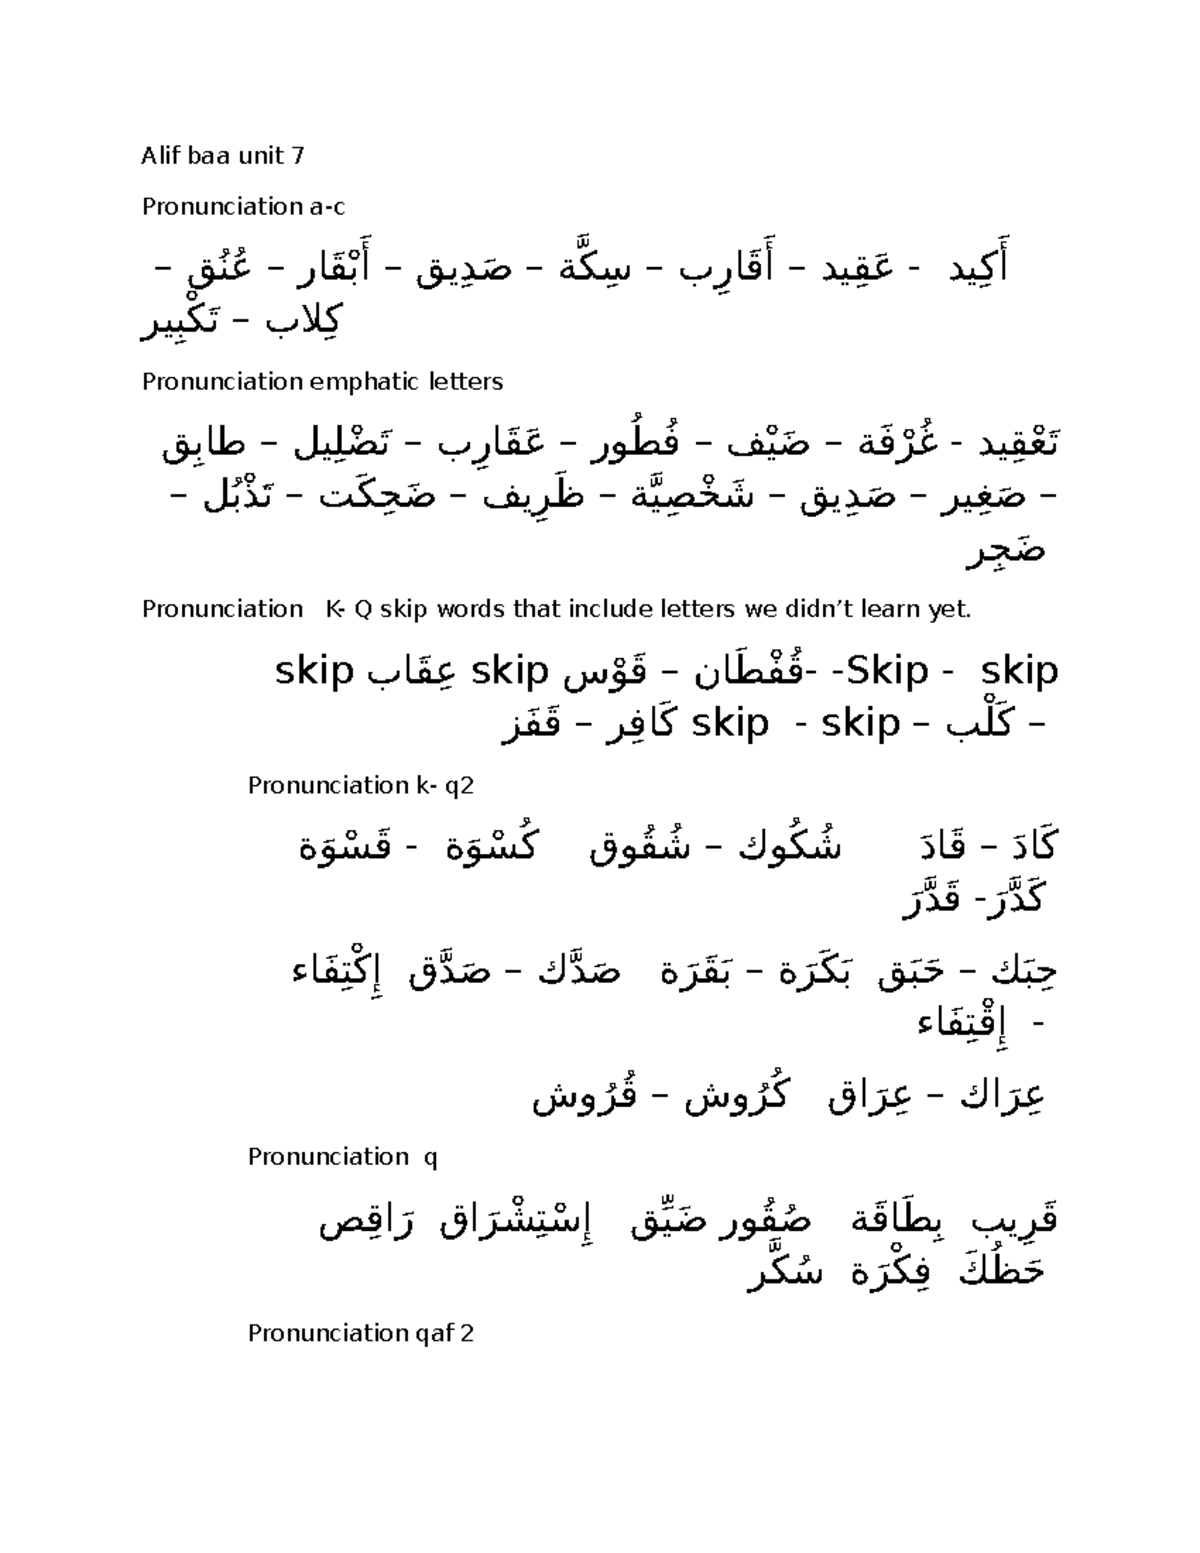 Alif baa unit 7
Pronunciation a-c
أَكِيد - عَقِيد – أَقَارِب – سِكَّة – صَدِيق – أَبْقَار – عُنُق –
كِلاب – تَكْبِير
Pronunciation emphatic letters
تَعْقِيد - غُرْفَة – ضَيْف – فُطُور – عَقَارِب – تَضْلِيل – طابِق
– صَغِير – صَدِيق – شَخْصِيَّة – ظَرِيف – ضَحِكَت – تَذْبُل –
ضَجِر
Pronunciation K- Q skip words that include letters we didn’t learn yet.
skip - Skip- -قُفْطَان – قَوْس skip عِقَاب skip
– كَلْب – skip - skip كَافِر – قَفَز
Pronunciation k- q2
كَادَ – قَادَ شُكُوك – شُقُوق كُسْوَة - قَسْوَة
كَدَّرَ- قَدَّرَ
حِبَك – حَبَق بَكَرَة – بَقَرَة صَدَّك – صَدَّق إِكْتِفَاء
- إِقْتِفَاء
عِرَاك – عِرَاق كُرُوش – قُرُوش
Pronunciation q
قَرِيب بِطَاقَة صُقُور ضَيِّق إِسْتِشْرَاق رَاقِص
حَظُكَ فِكْرَة سُكَّر
Pronunciation qaf 2